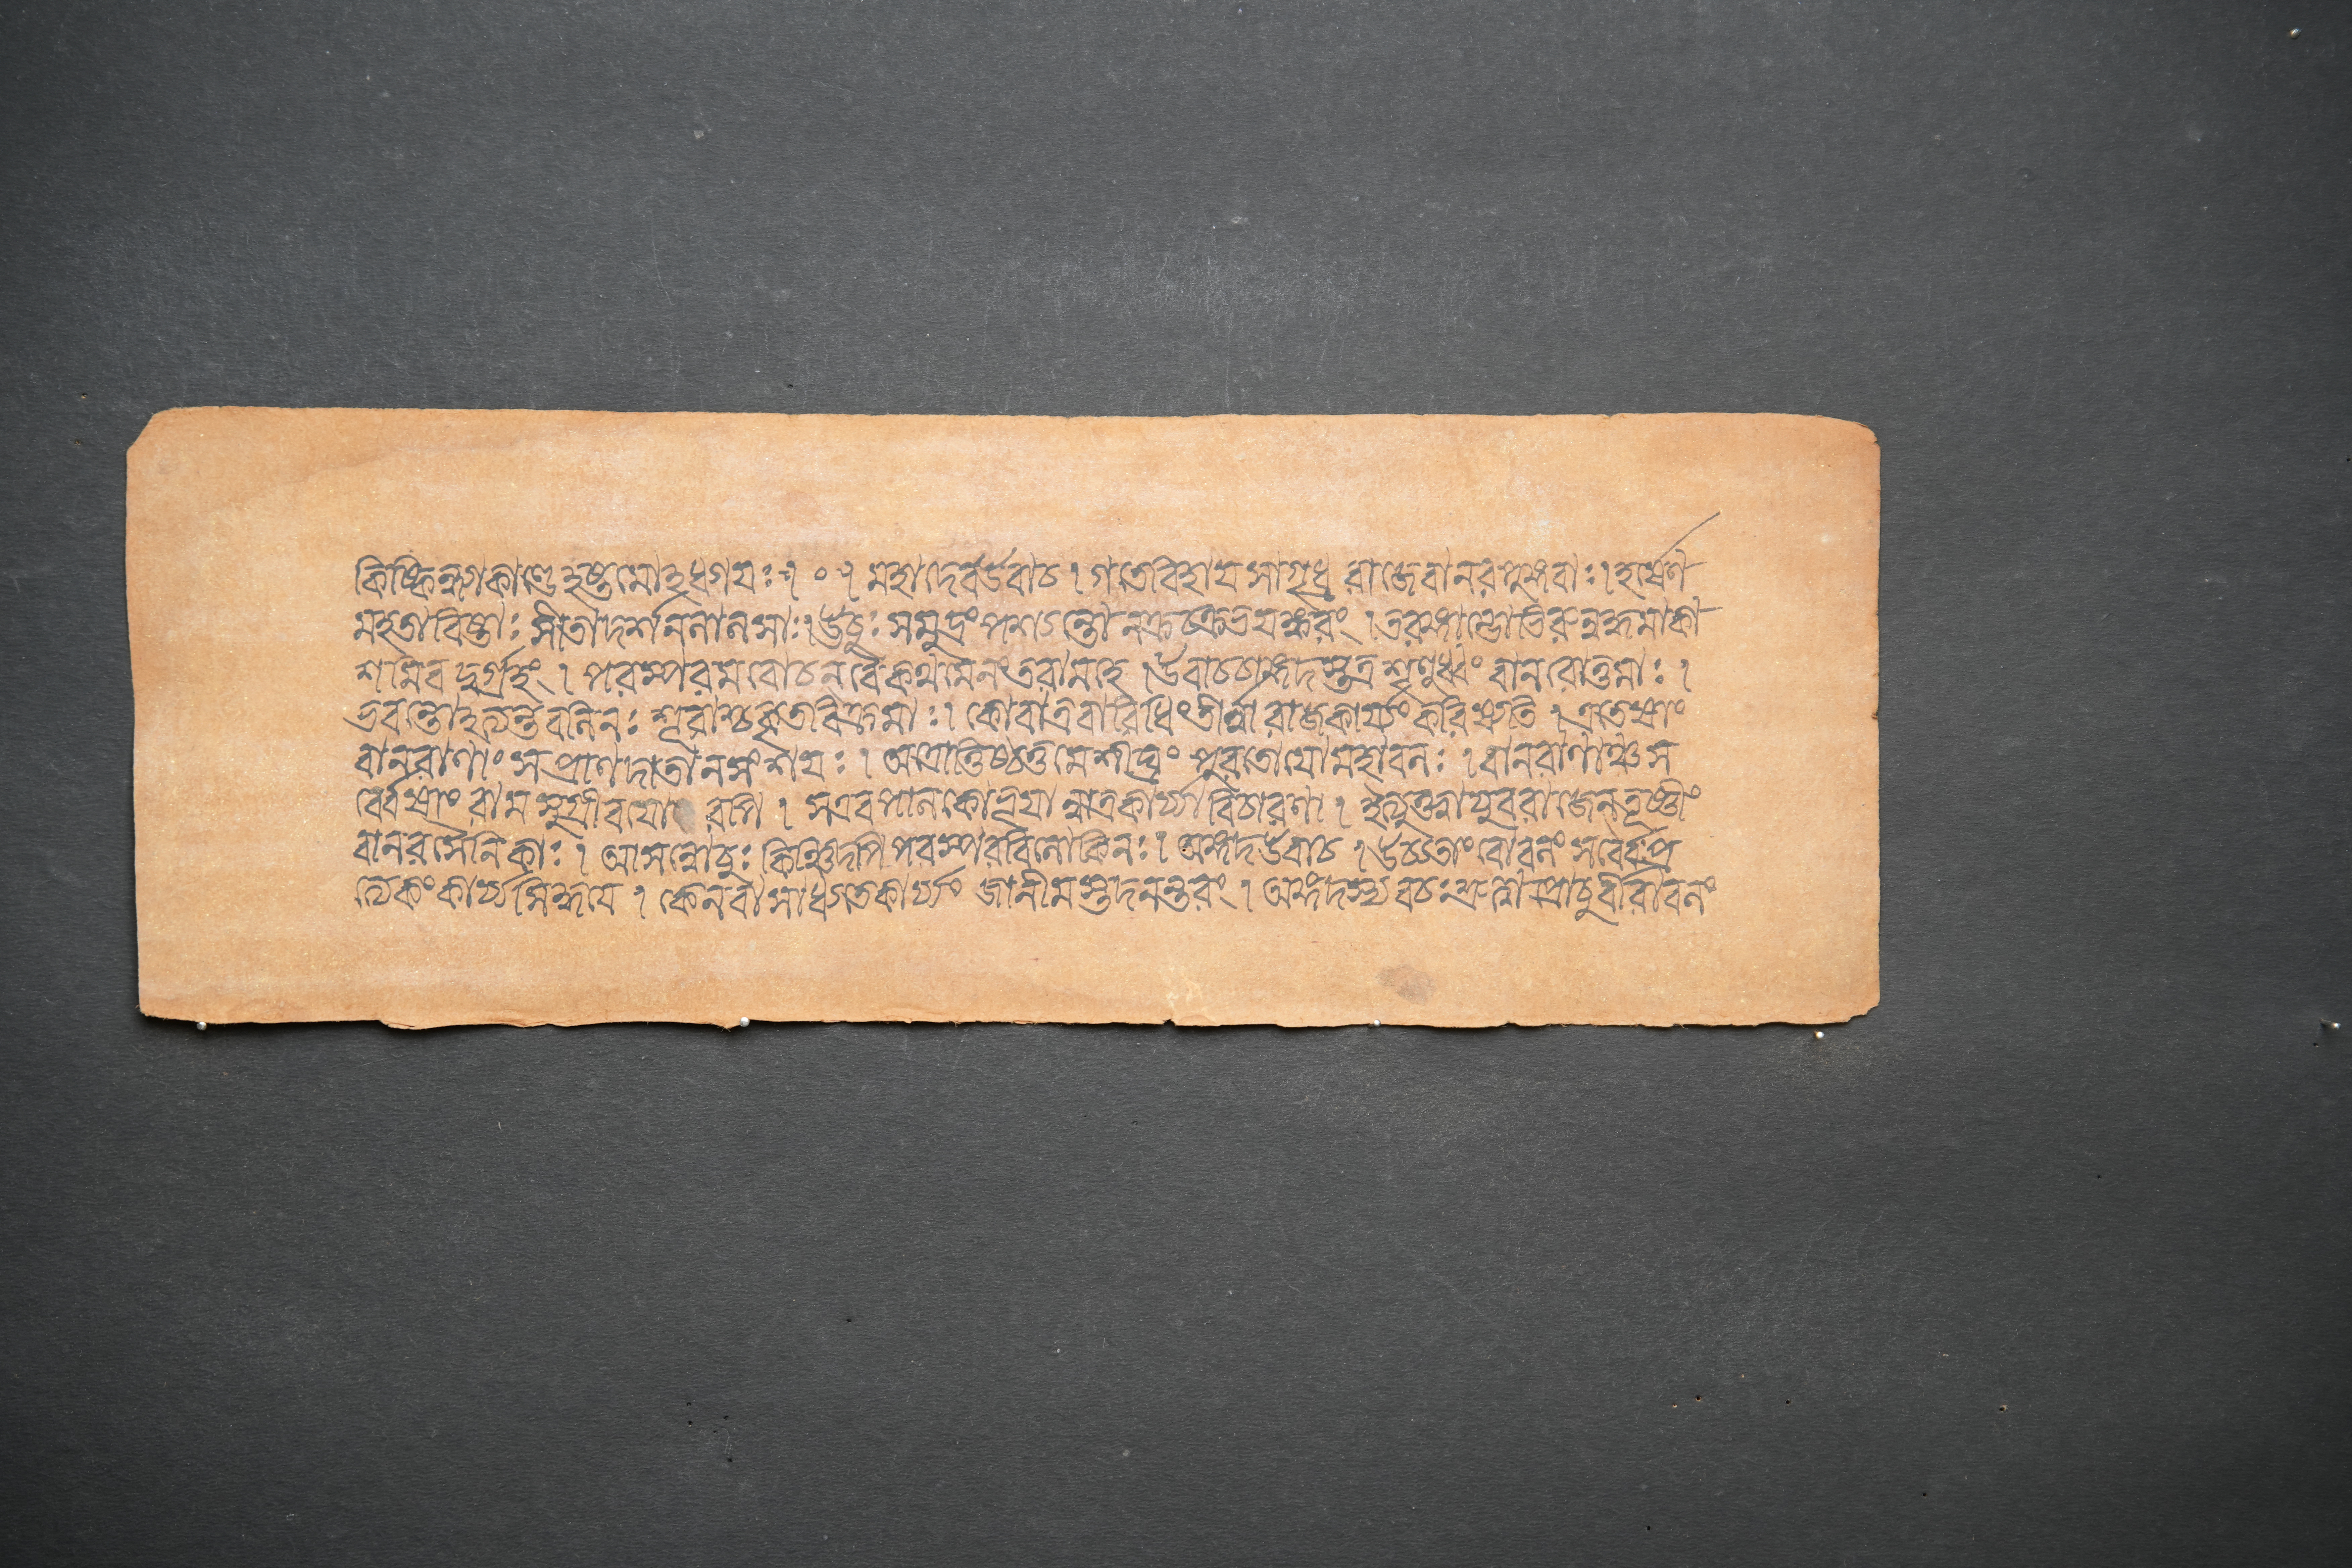 কিষ্কিন্ধ্যাকাণ্ডেহষ্টমোহধ্যায়ঃ । ० । মহাদেবউবাচ । গতেবিহায়সাগৃধ্ররাজেবানরপুঙ্গবাঃ । হর্ষেণ
মহতাবিষ্টাঃ সীতাদর্শনলালসাঃ । ঊচুঃ সমুদ্রং পশ্যন্তো নক্রচক্রভয়ঙ্করং । তরঙ্গাদ্যৈরুন্নদ্ধমাকা
শমিবদুর্গ্রহং । পরস্পরমবোচন্বৈকথমেনংতরামহে । উবাচচাঙ্গদস্তত্র শৃণুধ্বং বানরোত্তমাঃ ।
ভবন্তোহত্যন্তবলিনঃ শূরাশ্চকৃতবিক্রমাঃ । কোবাত্রবারিধিংতীর্ত্বারাজকার্য্যং করিষ্যতি । এতেষাং
বানরাণাং সপ্রাণদাতানসংশয়ঃ । অত্রোত্তিষ্ঠতুমেশীঘ্রং পুরতোযোমহাবলঃ । বানরাণাঞ্চস
র্ব্বেষাং রামসুগ্রীবযো রপি । সএবপালকোভূয়ান্নাত্রকার্য্যাবিচারণা । ইত্যুক্তেযুবরাজেনতূষ্ণীং
বানরসৈনিকাঃ । আসন্নোচুঃ কিঞ্চিদপিপরস্পরবিলোকিনঃ । অঙ্গদউবাচ । উচ্যতাং বৈবলং সর্ব্বৈঃপ্র
ত্যেকংকার্য্যসিদ্ধয়ে । কেনবাসাধ্যতেকার্য্যং জানীমস্তদনন্তরং । অঙ্গদস্যবচঃশ্রুত্বাপ্রোচুর্বীরাবলং